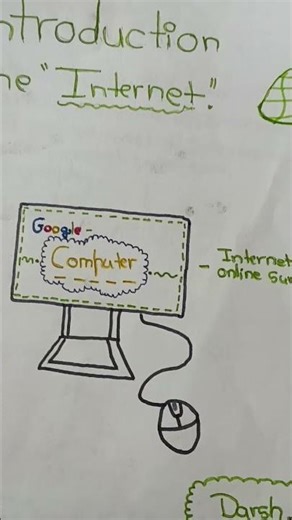 ntroduction
he "Internet".
Google -
Computer
- Internet
online su
Darsh